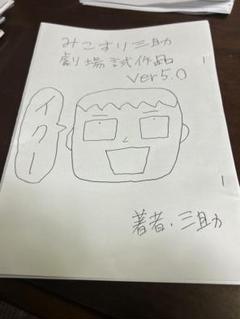 みこすり三助
劇場試作品
ver5.0
イクー
著者、三助